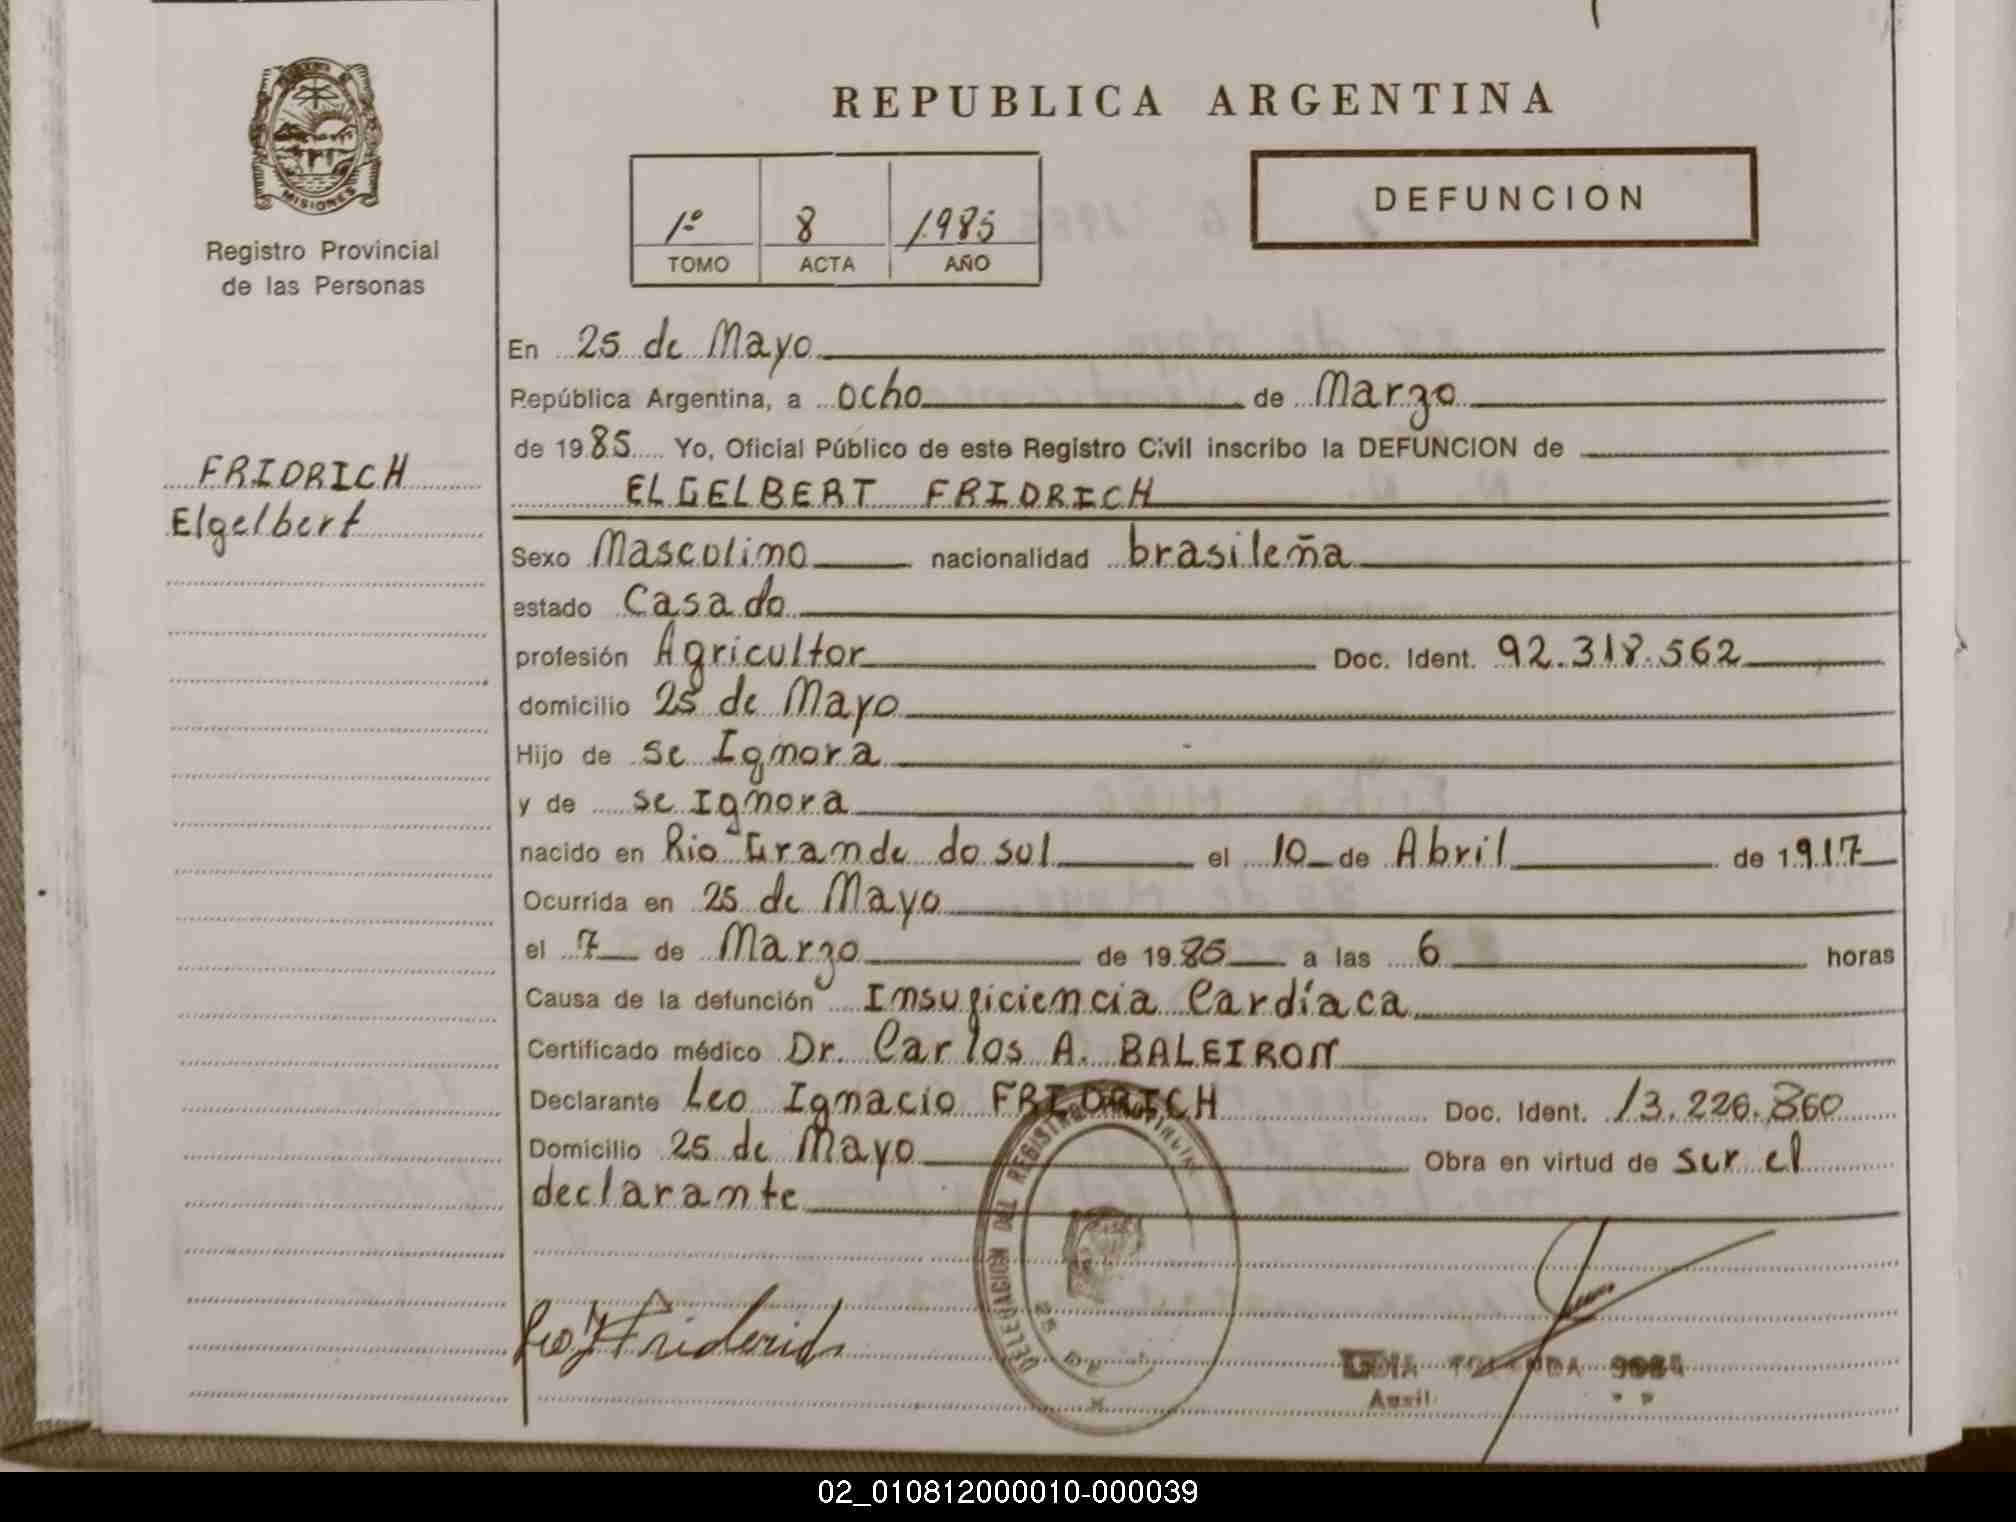 REPUBLICA ARGENTINA
MISIONES
Registro Provincial
de las Personas
1º 8 1985
TOMO ACTA AÑO
DEFUNCION
En 25 de Mayo
República Argentina, a ocho de Marzo
de 1985 Yo, Oficial Público de este Registro Civil inscribo la DEFUNCION de
FRIDRICH
Elgelbert
ELGELBERT FRIDRICH
Sexo Masculino nacionalidad brasileña
estado Casado
profesión Agricultor Doc. Ident. 92.318.562
domicilio 25 de Mayo
Hijo de se Ignora
y de se Ignora
nacido en Rio Grande do sul el 10 de Abril de 1917
Ocurrida en 25 de Mayo
el 7 de Marzo de 1985 a las 6 horas
Causa de la defunción Insuficiencia Cardíaca
Certificado médico Dr. Carlos A. BALEIRON
Declarante Leo Ignacio FRIDRICH Doc. Ident. 13.226.860
Domicilio 25 de Mayo Obra en virtud de ser el
declarante
DELEGACION DEL REGISTRO PROVINCIAL
25 DE
Leo I Friderich
Auxil
02_010812000010-000039